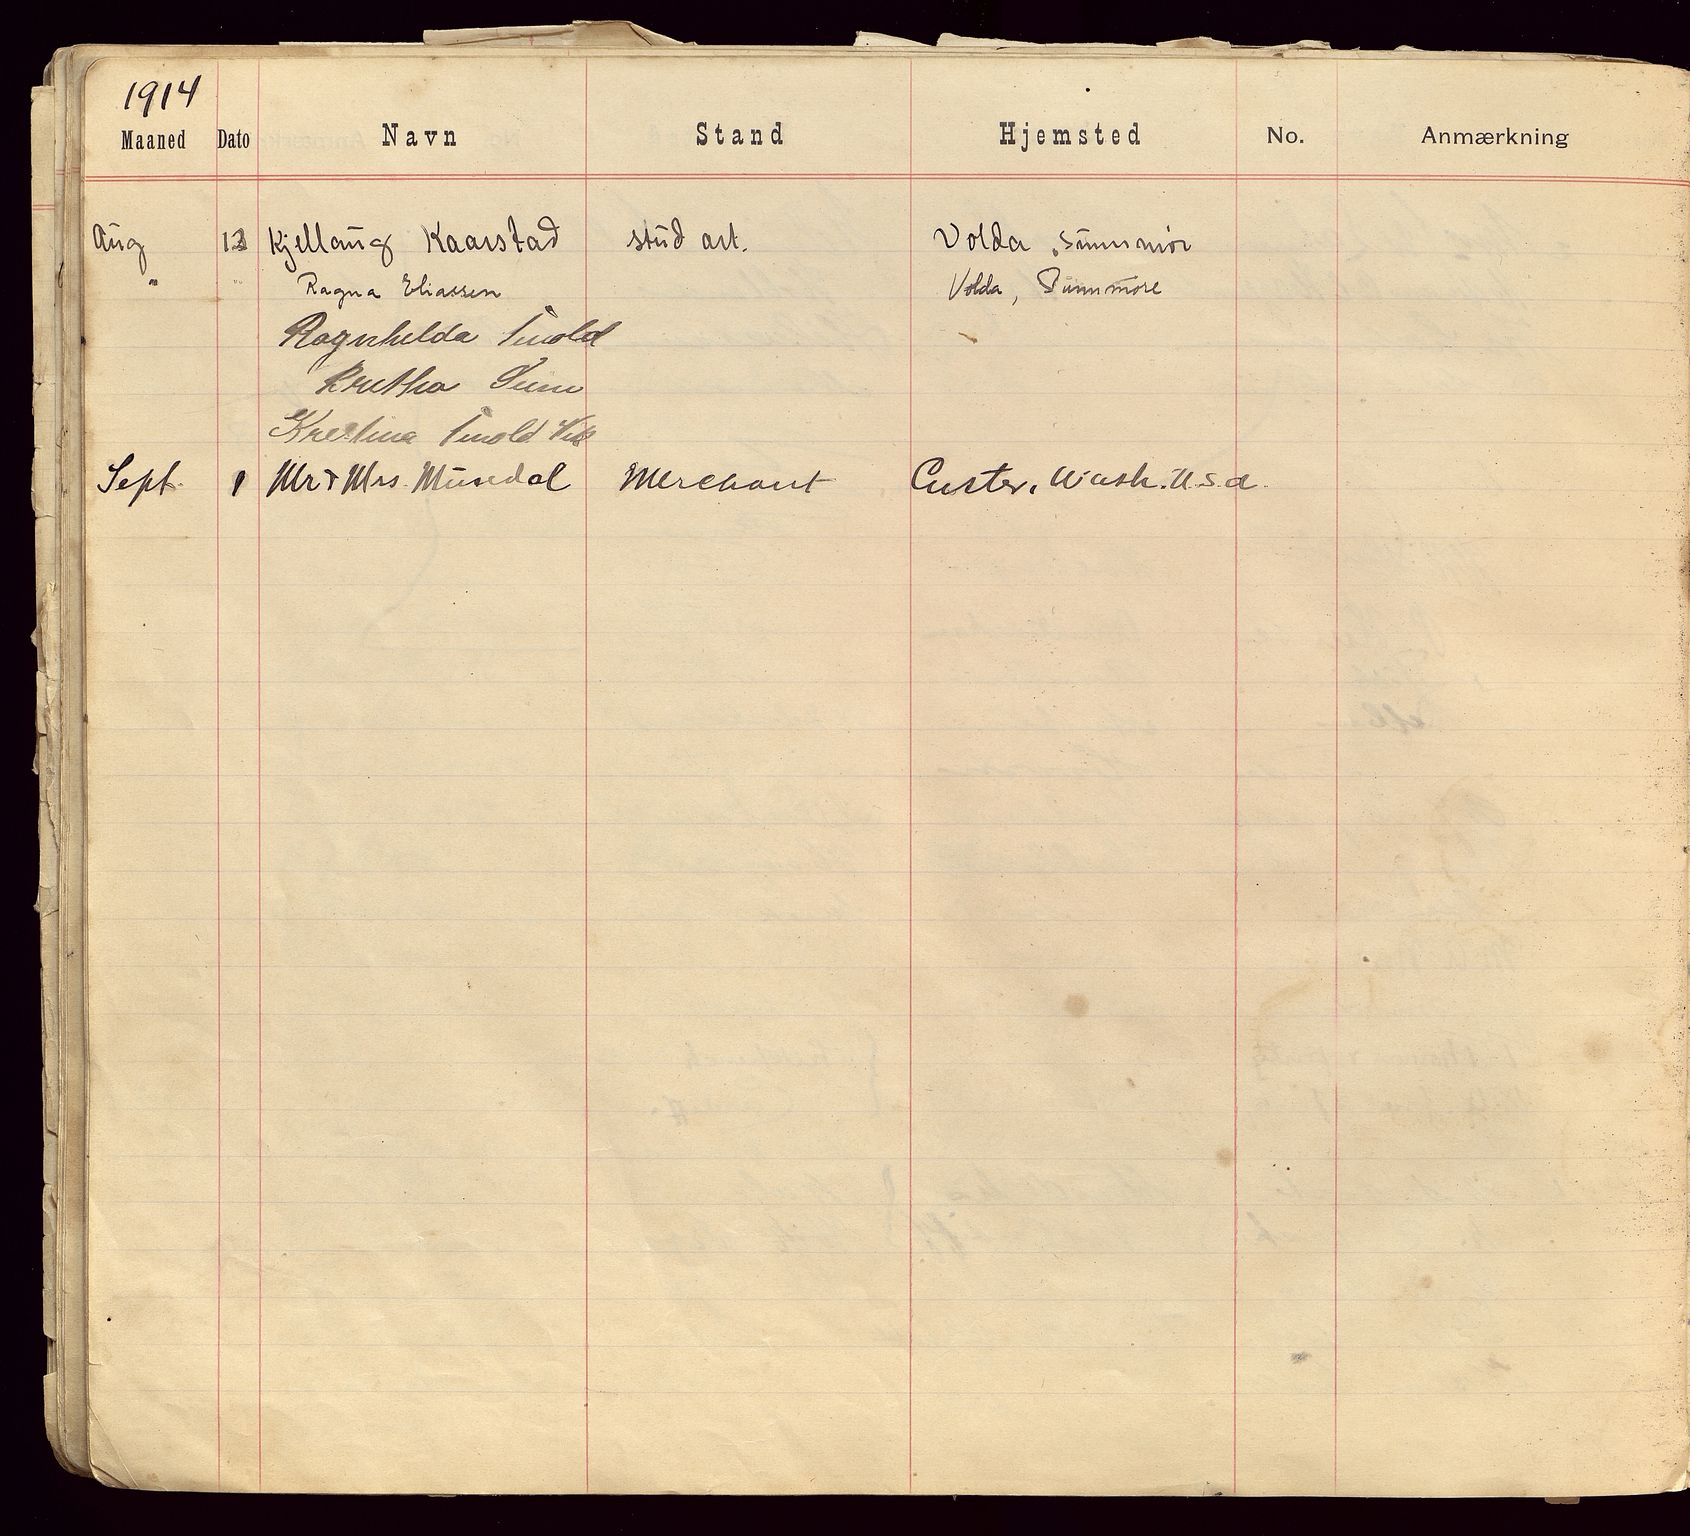 1914
Maaned Dato Navn Stand Hjemsted No. Anmærkning
Aug 13 Kjellaug Kaarstad stud art. Volda, Sunnmør
" " Ragna Eliassen Volda, Sunnmøre
Ragnhilda
Kristina
Sept. 1 Mr & Mrs. Musedal Merchant Custer, Wash. U.S.a.